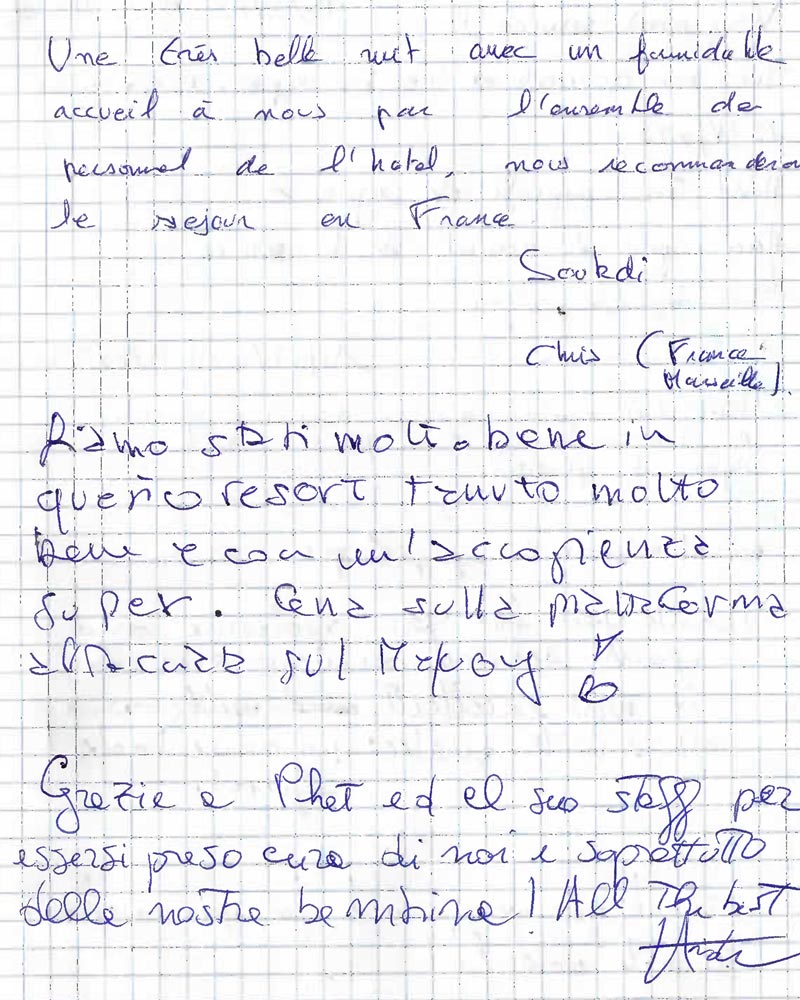 Une très belle nuit avec un formidable
accueil à nous par l'ensemble de
personnel de l'hotel, nous recommanderon
le sejour en France
Soukdi
Chris (France
Marseille).
Siamo stati molto bene in
questo resort tenuto molto
bene e con un'accoglienza
super. Cena sulla piattaforma
sul
Grazie a Phet ed el suo staff per
essersi preso cura di noi e soprattutto
delle nostre bambine! All The best